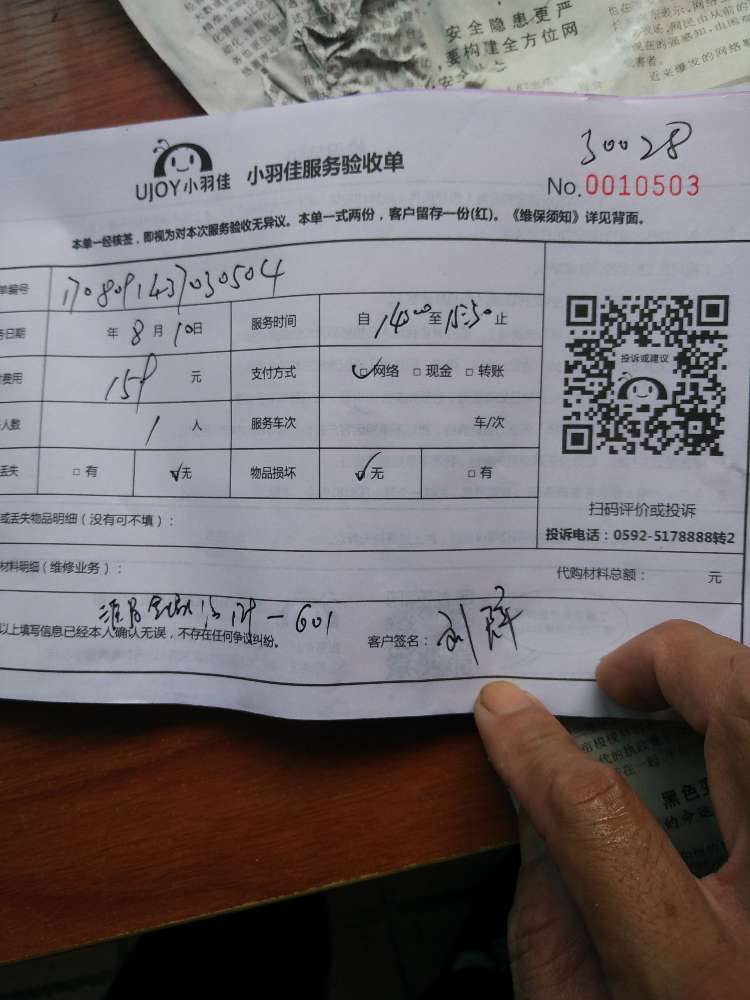 安全隐患更严
要构建全方位网
近来爆发的网络
30028
UJOY小羽佳 小羽佳服务验收单
No.0010503
本单一经核签，即视为对本次服务验收无异议。本单一式两份，客户留存一份(红)。《维保须知》详见背面。
单编号 1708091437030504
日期 年 8 月 10 日 服务时间 自 14:00 至 15:30 止
费用 158 元 支付方式 网络 □ 现金 □ 转账
人数 1 人 服务车次 车/次
丢失 □ 有 √无 物品损坏 √无 □ 有
投诉或建议
扫码评价或投诉
投诉电话：0592-5178888转2
或丢失物品明细（没有可不填）：
材料明细（维修业务）： 代购材料总额： 元
一601
以上填写信息已经本人确认无误，不存在任何争议纠纷。 客户签名： 刘
黑色